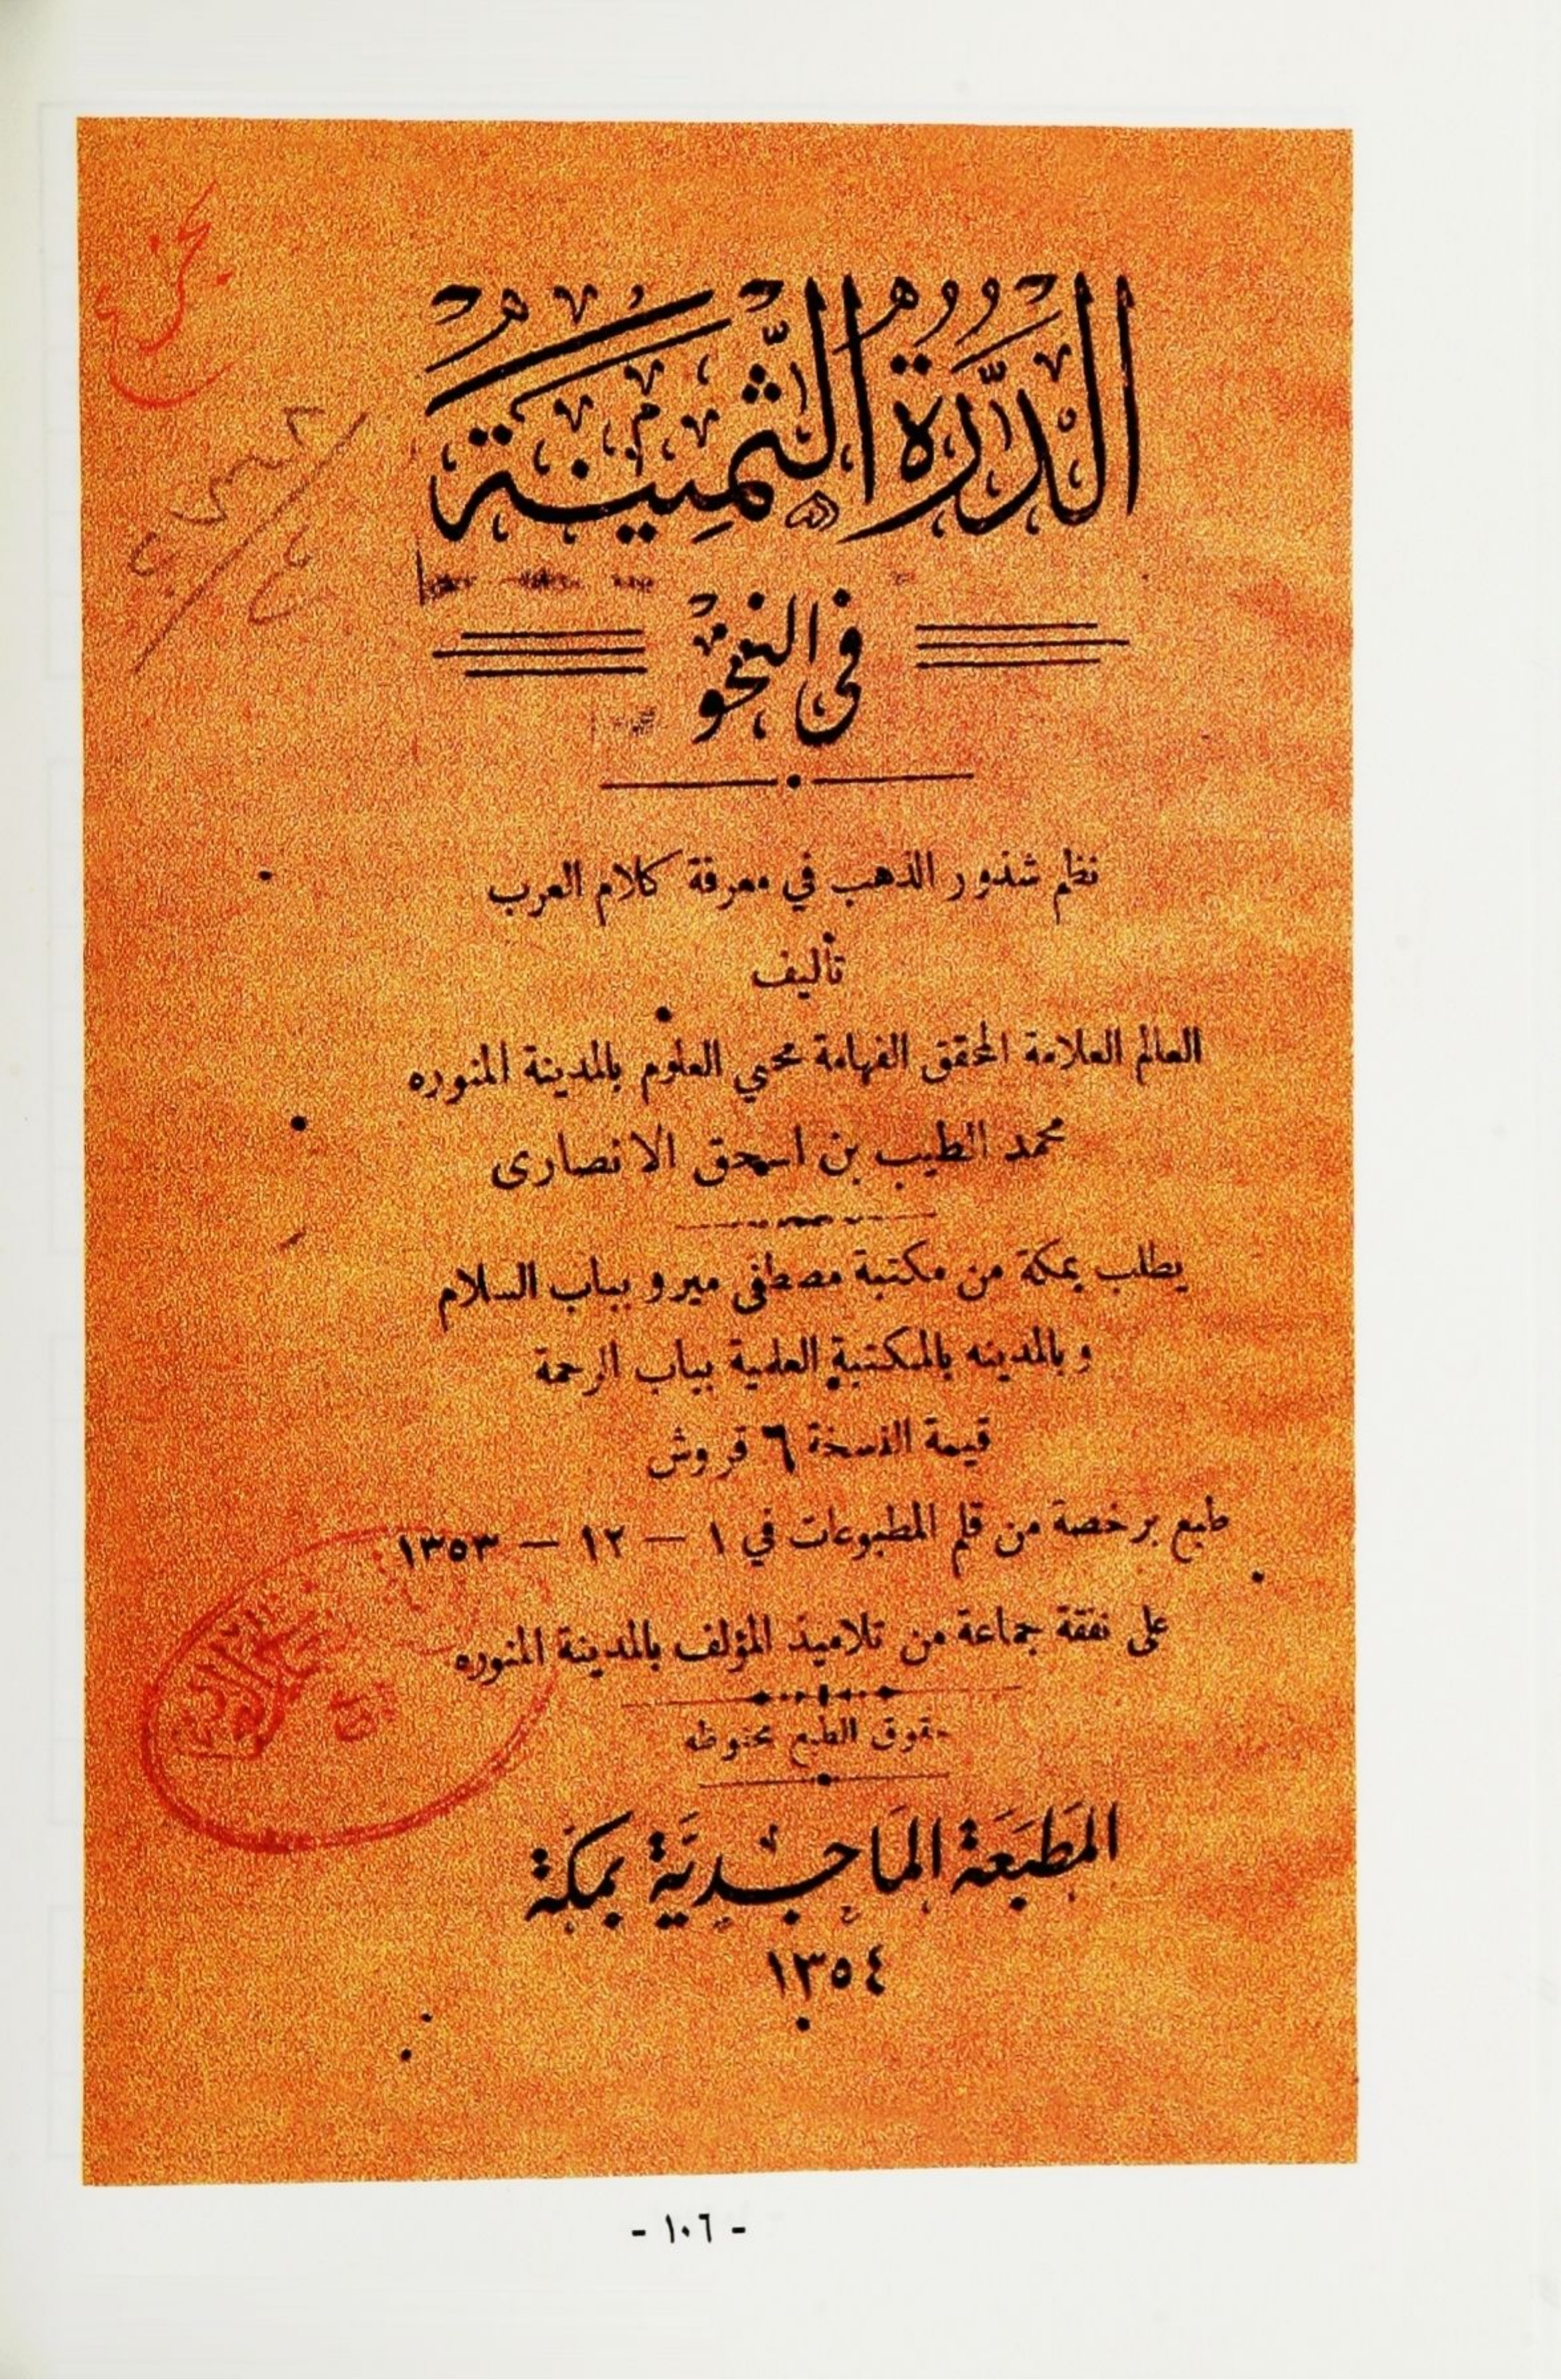 الدُّرَّةُ الثَّمِينَةُ
فِى النَّحْوِ
نظم شذور الذهب في معرفة كلام العرب
تأليف
العالم العلامة المحقق الفهامة محيي العلوم بالمدينة المنوره
محمد الطيب بن اسحق الانصارى
يطلب بمكة من مكتبة مصطفى ميرو بباب السلام
وبالمدينه بالمكتبة العلمية بباب الرحمة
قيمة النسخة ٦ قروش
طبع برخصة من قلم المطبوعات في ١ – ١٢ – ١٣٥٣
على نفقة جماعة من تلاميذ المؤلف بالمدينة المنوره
حقوق الطبع محفوظه
المَطبَعَة المَاجِديَّة بمكَّة
١٣٥٤
- ١٠٦ -